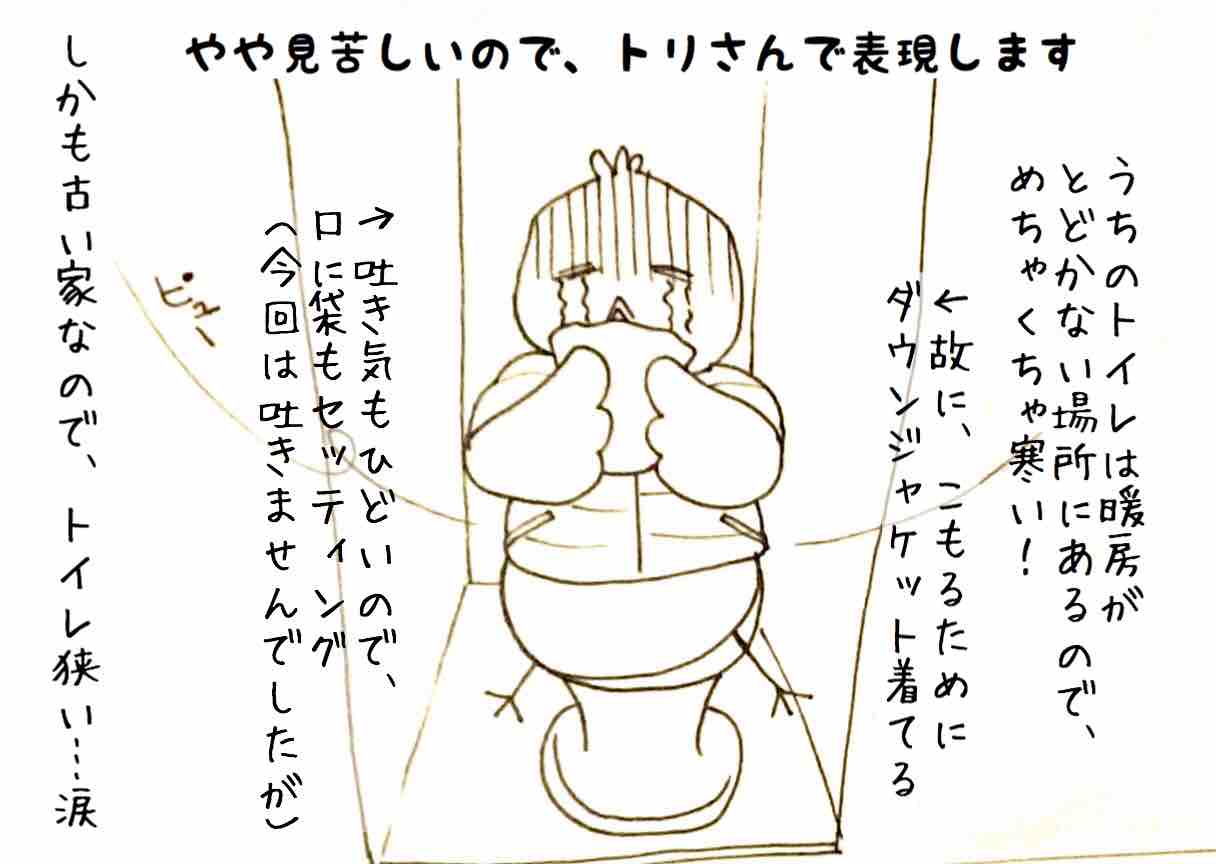 やや見苦しいので、トリさんで表現します
うちのトイレは暖房が
とどかない場所にあるので、
めちゃくちゃ寒い！
←故に、こもるために
ダウンジャケット着てる
→吐き気もひどいので、
口に袋もセッティング
（今回は吐きませんでしたが）
ピュー
しかも古い家なので、トイレ狭い…涙